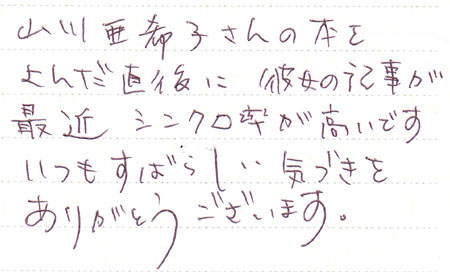 山川亜希子さんの本を
よんだ直後に 彼女の記事が
最近 シンクロ率が高いです
いつもすばらしい気づきを
ありがとうございます。